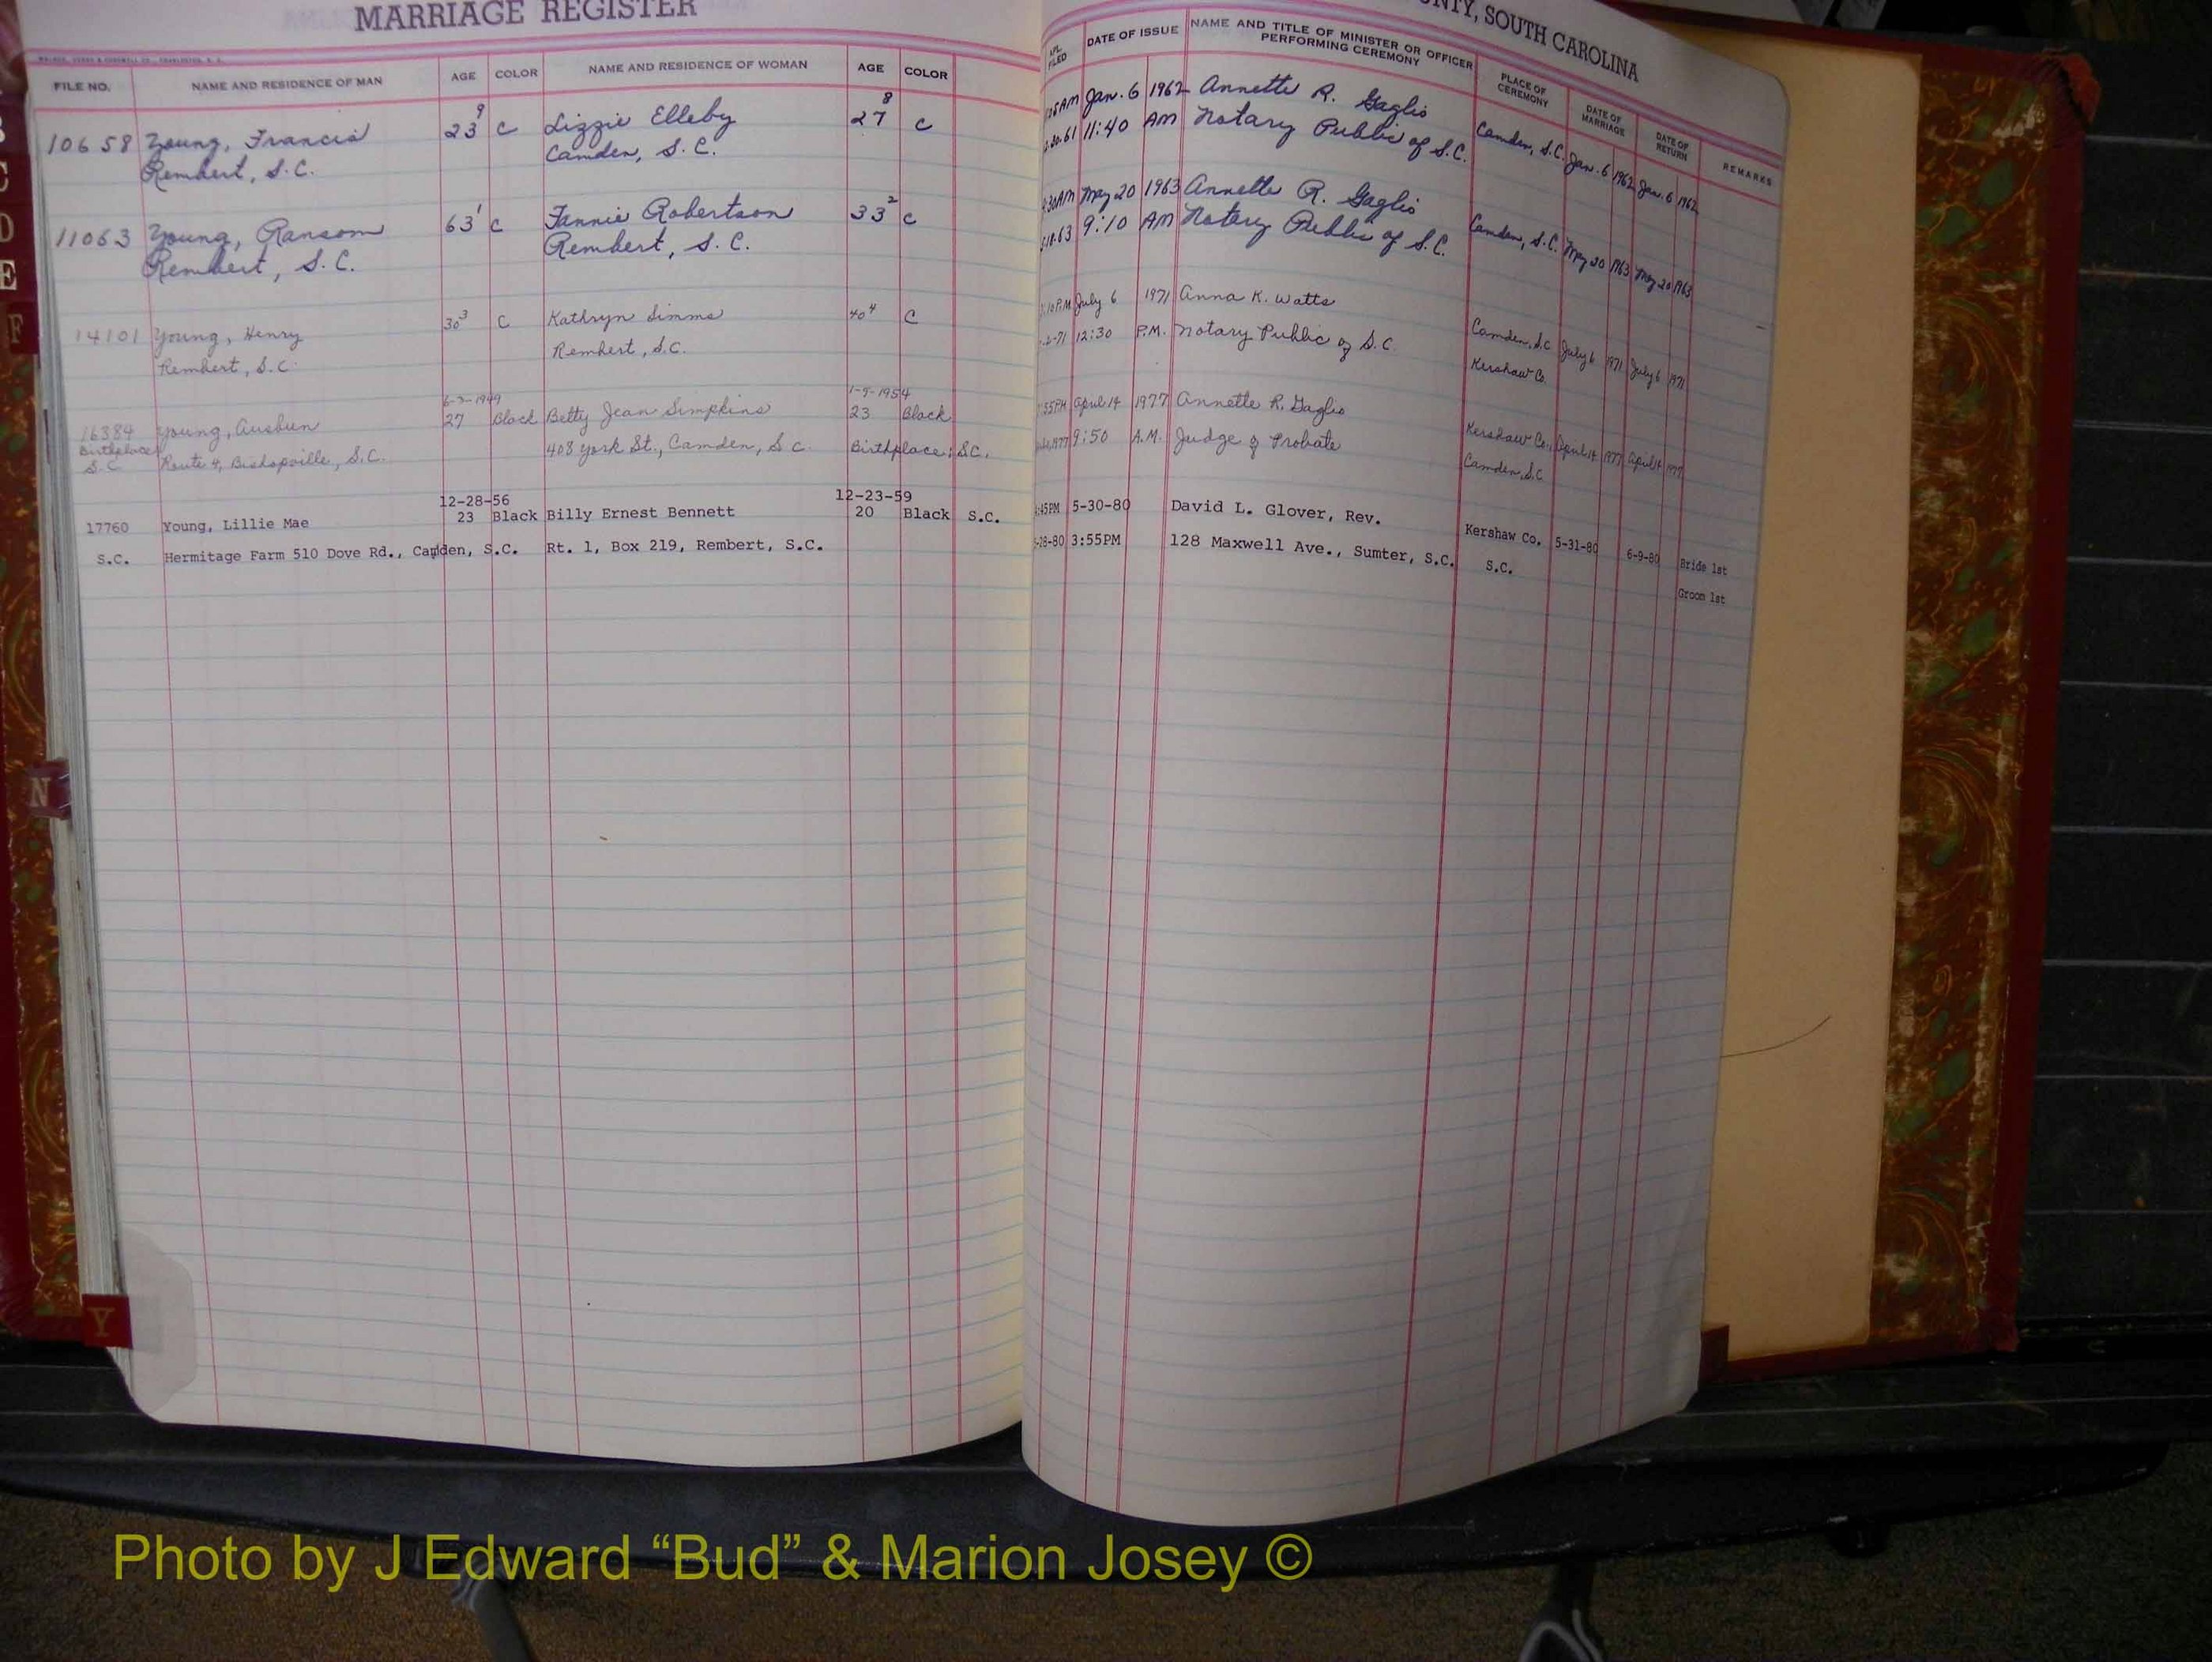 MARRIAGE REGISTER
NTY, SOUTH CAROLINA
FILE NO. NAME AND RESIDENCE OF MAN AGE COLOR NAME AND RESIDENCE OF WOMAN AGE COLOR
DATE OF ISSUE NAME AND TITLE OF MINISTER OR OFFICER PERFORMING CEREMONY PLACE OF CEREMONY DATE OF MARRIAGE DATE OF RETURN REMARKS
9 8
10658 Young, Francis 23 C Lizzie Elleby 27 C Jan. 6 1962 Annette R. Gaglio
Rembert, S.C. Camden, S.C. 11:40 AM Notary Public of S.C. Camden, S.C. Jan. 6 1962 Jan. 6 1962
1 2
11063 Young, Ransom 63 C Fannie Robertson 33 C May 20 1963 Annette R. Gaglio
Rembert, S.C. Rembert, S.C. 9:10 AM Notary Public of S.C. Camden, S.C. May 20 1963 May 20 1963
3 4
14101 Young, Henry 30 C Kathryn Simms 40 C July 6 1971 Anna K. Watts
Rembert, S.C. Rembert, S.C. 12:30 P.M. Notary Public of S.C. Camden, S.C. July 6 1971 July 6 1971
Kershaw Co.
1-9-1954
16384 Young, Ausbun 27 Black Betty Jean Simpkins 23 Black April 14 1977 Annette R. Gaglio
Birthplace S.C. Route 4, Bishopville, S.C. 408 York St., Camden, S.C. Birthplace: S.C. 9:50 A.M. Judge of Probate Kershaw Co., April 14 1977 April 14 1977
Camden, S.C.
12-28-56 12-23-59
17760 Young, Lillie Mae 23 Black Billy Ernest Bennett 20 Black S.C. 5-30-80 David L. Glover, Rev.
S.C. Hermitage Farm 510 Dove Rd., Camden, S.C. Rt. 1, Box 219, Rembert, S.C. 3:55PM 128 Maxwell Ave., Sumter, S.C. Kershaw Co. 5-31-80 6-9-80 Bride 1st
S.C. Groom 1st
C
D
E
F
N
Y
Photo by J Edward “Bud” & Marion Josey ©